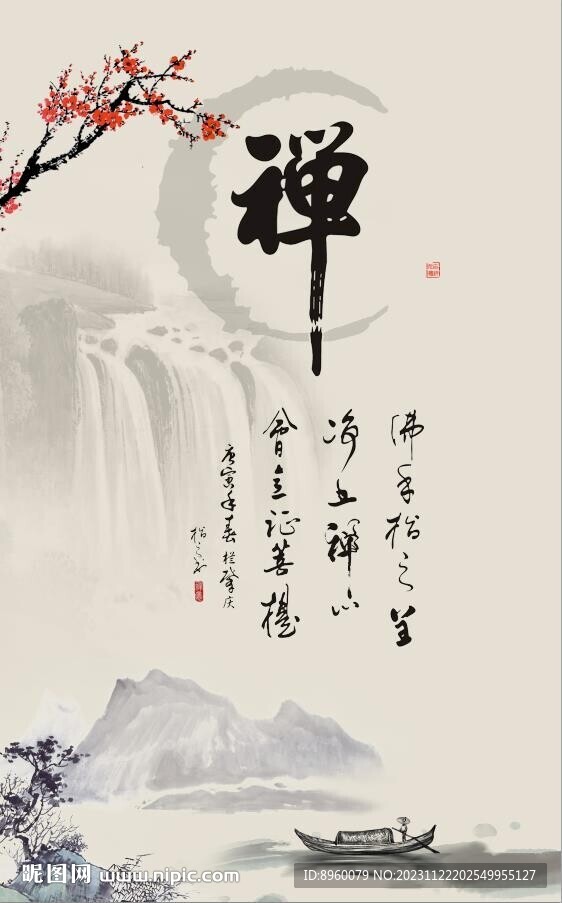 禅
佛手指之呈
净土禅心
会立证菩提
庚寅年春于肇庆
昵图网 www.nipic.com
ID:8960079 NO:20231122202549955127